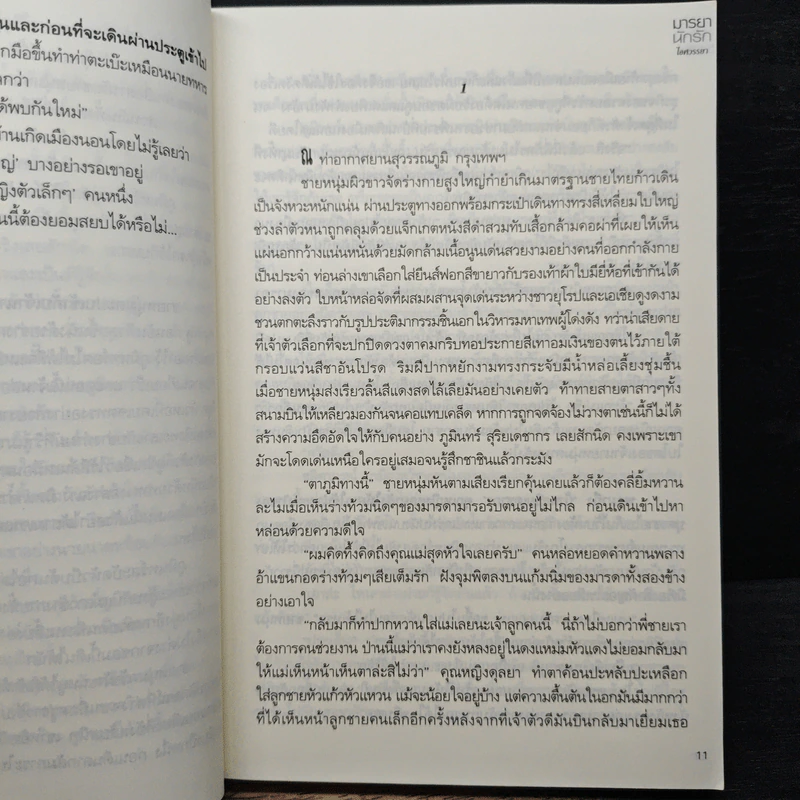 นและก่อนที่จะเดินผ่านประตูเข้าไป
กมือขึ้นทำท่าตะเบ๊ะเหมือนนายทหาร
กว่า
ด้พบกันใหม่”
้านเกิดเมืองนอนโดยไม่รู้เลยว่า
ญ่’ บางอย่างรอเขาอยู่
ญิงตัวเล็กๆ’ คนหนึ่ง
นนี้ต้องยอมสยบได้หรือไม่...
มารยา
นักรัก
ไอศวรรยา
1
ณ ท่าอากาศยานสุวรรณภูมิ กรุงเทพฯ
ชายหนุ่มผิวขาวจัดร่างกายสูงใหญ่กำยำเกินมาตรฐานชายไทยก้าวเดิน
เป็นจังหวะหนักแน่น ผ่านประตูทางออกพร้อมกระเป๋าเดินทางทรงสี่เหลี่ยมใบใหญ่
ช่วงลำตัวหนาถูกคลุมด้วยแจ็กเกตหนังสีดำสวมทับเสื้อกล้ามคอผ่าที่เผยให้เห็น
แผ่นอกกว้างแน่นหนั่นด้วยมัดกล้ามเนื้อนูนเด่นสวยงามอย่างคนที่ออกกำลังกาย
เป็นประจำ ท่อนล่างเขาเลือกใส่ยีนส์ฟอกสีขายาวกับรองเท้าผ้าใบมียี่ห้อที่เข้ากันได้
อย่างลงตัว ใบหน้าหล่อจัดที่ผสมผสานจุดเด่นระหว่างชาวยุโรปและเอเชียดูงดงาม
ชวนตกตะลึงราวกับรูปประติมากรรมชิ้นเอกในวิหารมหาเทพผู้โด่งดัง ทว่าน่าเสียดาย
ที่เจ้าตัวเลือกที่จะปกปิดดวงตาคมกริบทอประกายสีเทาอมเงินของตนไว้ภายใต้
กรอบแว่นสีชาอันโปรด ริมฝีปากหยักงามทรงกระจับมีน้ำหล่อเลี้ยงชุ่มชื้น
เมื่อชายหนุ่มส่งเรียวลิ้นสีแดงสดไล้เลียมันอย่างเคยตัว ท้าทายสายตาสาวๆทั้ง
สนามบินให้เหลียวมองกันจนคอแทบเคล็ด หากการถูกจดจ้องไม่วางตาเช่นนี้ก็ไม่ได้
สร้างความอึดอัดใจให้กับคนอย่าง ภูมินทร์ สุริยเดชากร เลยสักนิด คงเพราะเขา
มักจะโดดเด่นเหนือใครอยู่เสมอจนรู้สึกชาชินแล้วกระมัง
“ตาภูมิทางนี้” ชายหนุ่มหันตามเสียงเรียกคุ้นเคยแล้วก็ต้องคลี่ยิ้มหวาน
ละไมเมื่อเห็นร่างท้วมนิดๆของมารดามารอรับตนอยู่ไม่ไกล ก่อนเดินเข้าไปหา
หล่อนด้วยความดีใจ
“ผมคิดถึ้งคิดถึงคุณแม่สุดหัวใจเลยครับ” คนหล่อหยอดคำหวานพลาง
อ้าแขนกอดร่างท้วมๆเสียเต็มรัก ฝังจุมพิตลงบนแก้มนิ่มของมารดาทั้งสองข้าง
อย่างเอาใจ
“กลับมาก็ทำปากหวานใส่แม่เลยนะเจ้าลูกคนนี้ นี่ถ้าไม่บอกว่าพี่ชายเรา
ต้องการคนช่วยงาน ป่านนี้แม่ว่าเราคงยังหลงอยู่ในดงแหม่มหัวแดงไม่ยอมกลับมา
ให้แม่เห็นหน้าเห็นตาล่ะสิไม่ว่า” คุณหญิงดุลยา ทำตาค้อนปะหลับปะเหลือก
ใส่ลูกชายหัวแก้วหัวแหวน แม้จะน้อยใจอยู่บ้าง แต่ความตื้นตันในอกมันมีมากกว่า
ที่ได้เห็นหน้าลูกชายคนเล็กอีกครั้งหลังจากที่เจ้าตัวดีมันบินกลับมาเยี่ยมเธอ
11